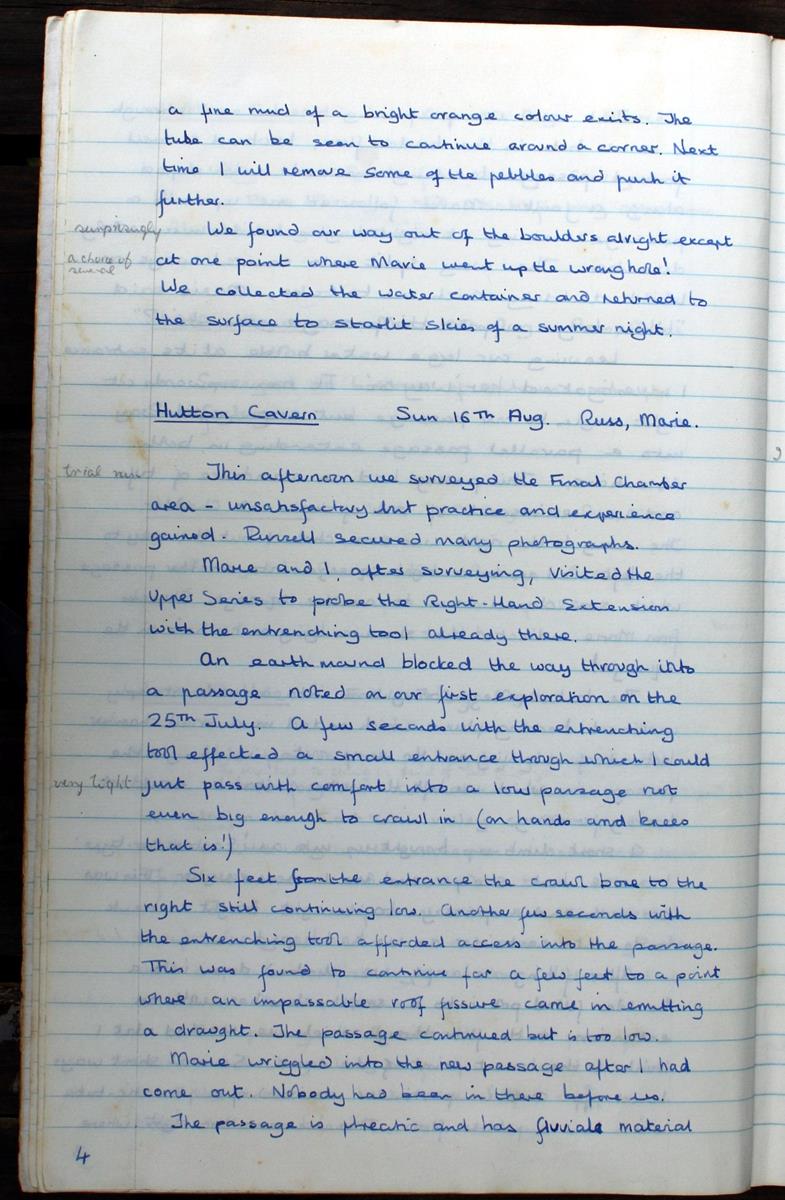 a fine mud of a bright orange colour exists. The
tube can be seen to continue around a corner. Next
time I will remove some of the pebbles and push it
further.
surprisingly
We found our way out of the boulders alright except
a choice of
several
at one point where Marie went up the wrong hole!
We collected the water container and returned to
the surface to starlit skies of a summer night.
Hutton Cavern Sun 16TH Aug. Russ, Marie.
trial run
This afternoon we surveyed the Final Chamber
area - unsatisfactory but practice and experience
gained. Russell secured many photographs.
Marie and I, after surveying, visited the
Upper Series to probe the Right-Hand Extension
with the entrenching tool already there.
An earth mound blocked the way through into
a passage noted on our first exploration on the
25TH July. A few seconds with the entrenching
tool effected a small entrance through which I could
very tight
just pass with comfort into a low passage not
even big enough to crawl in (on hands and knees
that is!)
Six feet from the entrance the crawl bore to the
right still continuing low. Another few seconds with
the entrenching tool afforded access into the passage.
This was found to continue for a few feet to a point
where an impassable roof fissure came in emitting
a draught. The passage continued but is too low.
Marie wriggled into the new passage after I had
come out. Nobody had been in there before us.
The passage is phreatic and has fluvial material
4